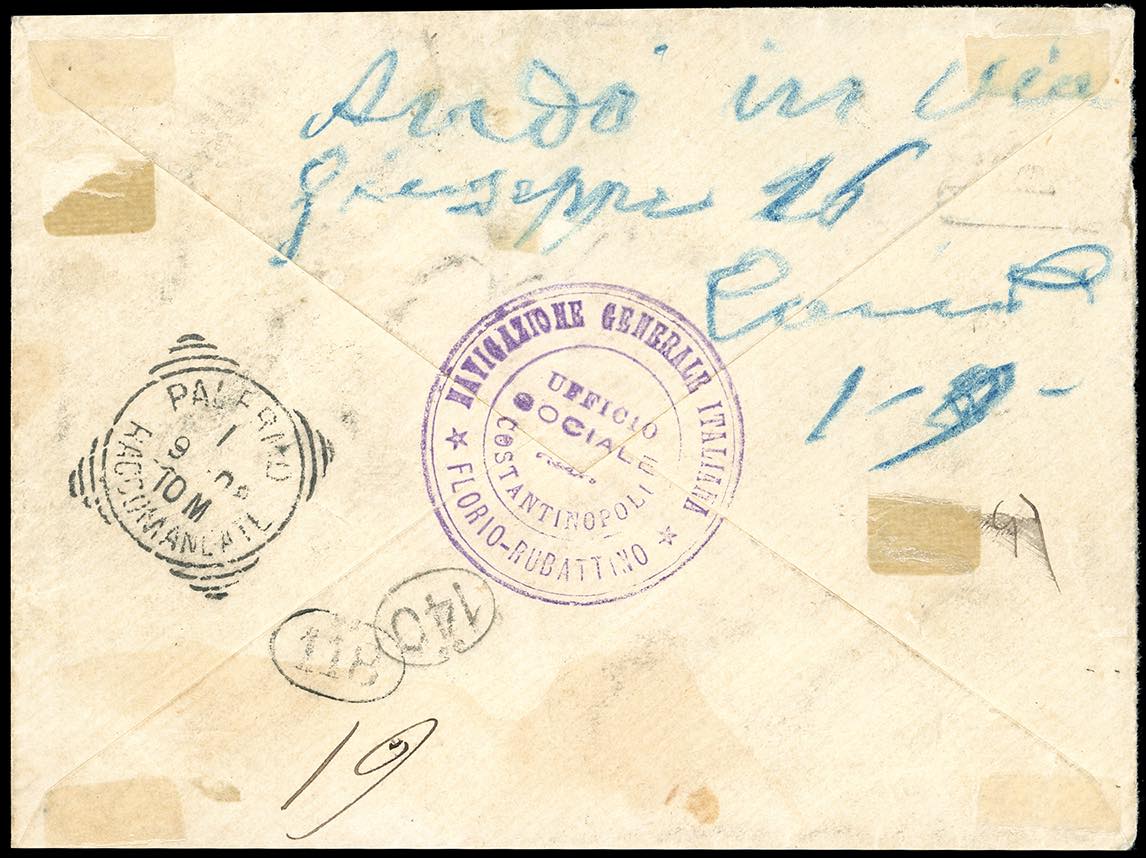 Andò in via
Giuseppe 26
1-9-
NAVIGAZIONE GENERALE ITALIANA
★ FLORIO-RUBATTINO ★
UFFICIO
SOCIALE
COSTANTINOPOLI
PALERMO
9 1
10 M
RACCOMANDATE
140
19